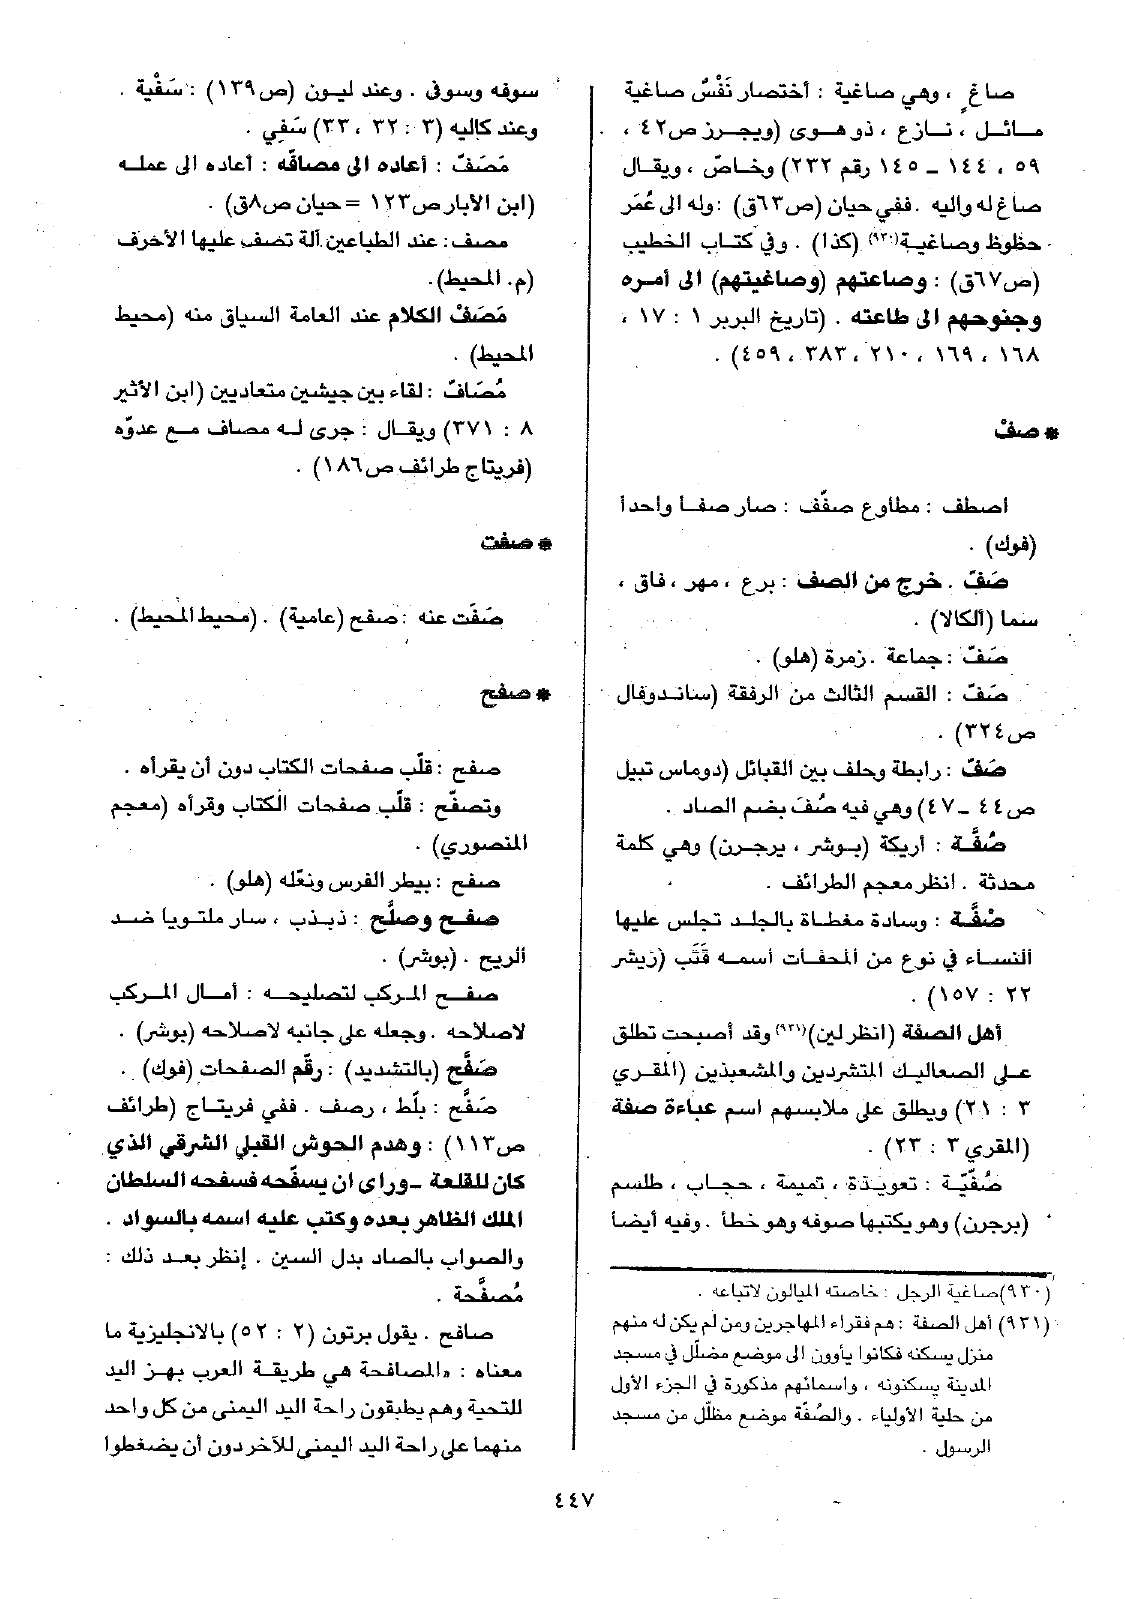 صاغٍ ، وهي صاغية : أختصار نَفْسٌ صاغية
مائل ، نازع ، ذو هوى (ويجرز ص٤٢ ،
٥٩ ، ١٤٤ ـ ١٤٥ رقم ٢٣٢) وخاصّ ، ويقال
صاغ له واليه . ففي حيان (ص٦٣ق) : وله الى عُمَر
حظوظ وصاغية(٩٣٠) (كذا) . وفي كتاب الخطيب
(ص٦٧ق) : وصاعتهم (وصاغيتهم) الى أمره
وجنوحهم الى طاعته . (تاريخ البربر ١ : ١٧ ،
١٦٨ ، ١٦٩ ، ٢١٠ ، ٣٨٣ ، ٤٥٩) .
* صفّ
اصطف : مطاوع صفّف : صار صفا واحداً
(فوك) .
صَفّ . خرج من الصف : برع ، مهر ، فاق ،
سما (ألكالا) .
صَفّ : جماعة . زمرة (هلو) .
صَفّ : القسم الثالث من الرفقة (ساندوفال
ص٣٢٤) .
صَفّ : رابطة وحلف بين القبائل (دوماس تبيل
ص٤٤ ـ ٤٧) وهي فيه صُفّ بضم الصاد .
صُفَّة : أريكة (بوشر ، يرجرن) وهي كلمة
محدثة . انظر معجم الطرائف .
صُفَّة : وسادة مغطاة بالجلد تجلس عليها
النساء في نوع من المحفات أسمه قَتَب (زيشر
٢٢ : ١٥٧) .
أهل الصفة (انظر لين)(٩٣١) وقد أصبحت تطلق
على الصعاليك المتشردين والمشعبذين (المقري
٣ : ٢١) ويطلق على ملابسهم اسم عباءة صفة
(المقري ٣ : ٢٣) .
صُفّيّة : تعويذة ، تميمة ، حجاب ، طلسم
(برجرن) وهو يكتبها صوفه وهو خطأ . وفيه أيضاً
(٩٣٠) صاغية الرجل : خاصته الميالون لاتباعه .
(٩٣١) أهل الصفة : هم فقراء المهاجرين ومن لم يكن له منهم
منزل يسكنه فكانوا يأوون الى موضع مضلّل في مسجد
المدينة يسكنونه ، واسمائهم مذكورة في الجزء الأول
من حلية الأولياء . والصُفّة موضع مظلّل من مسجد
الرسول .
سوفه وسوفى . وعند ليون (ص١٣٩) : سَفْية .
وعند كاليه (٣ : ٢٢ ، ٢٣) سَفِي .
مَصَفّ : أعاده الى مصافّه : أعاده الى عمله
(ابن الأبار ص١٢٣ = حيان ص٨ق) .
مصف : عند الطباعين آلة تصف عليها الأحرف
(م. المحيط).
مَصَفّ الكلام عند العامة السياق منه (محيط
المحيط) .
مُصَافّ : لقاء بين جيشين متعاديين (ابن الأثير
٨ : ٣٧١) ويقال : جرى له مصاف مع عدوّه
(فريتاج طرائف ص١٨٦) .
* صفت
صَفَت عنه : صفح (عامية) . (محيط المحيط) .
* صفح
صفح : قلّب صفحات الكتاب دون أن يقرأه .
وتصفّح : قلّب صفحات الكتاب وقرأه (معجم
المنصوري) .
صفح : بيطر الفرس ونعّله (هلو) .
صفح وصلَّح : ذبذب ، سار ملتويا ضد
الريح . (بوشر) .
صفح المركب لتصليحه : أمال المركب
لاصلاحه . وجعله على جانبه لاصلاحه (بوشر) .
صَفَّح (بالتشديد) : رقّم الصفحات (فوك) .
صَفَّح : بلّط ، رصف . ففي فريتاج (طرائف
ص١١٣) : وهدم الحوش القبلي الشرقي الذي
كان للقلعة ـ وراى ان يسفّحه فسفحه السلطان
الملك الظاهر بعده وكتب عليه اسمه بالسواد .
والصواب بالصاد بدل السين . إنظر بعد ذلك :
مُصفَّحة .
صافح . يقول برتون (٢ : ٥٢) بالانجليزية ما
معناه : «المصافحة هي طريقة العرب بهز اليد
للتحية وهم يطبقون راحة اليد اليمنى من كل واحد
منهما على راحة اليد اليمنى للآخر دون أن يضغطوا
٤٤٧